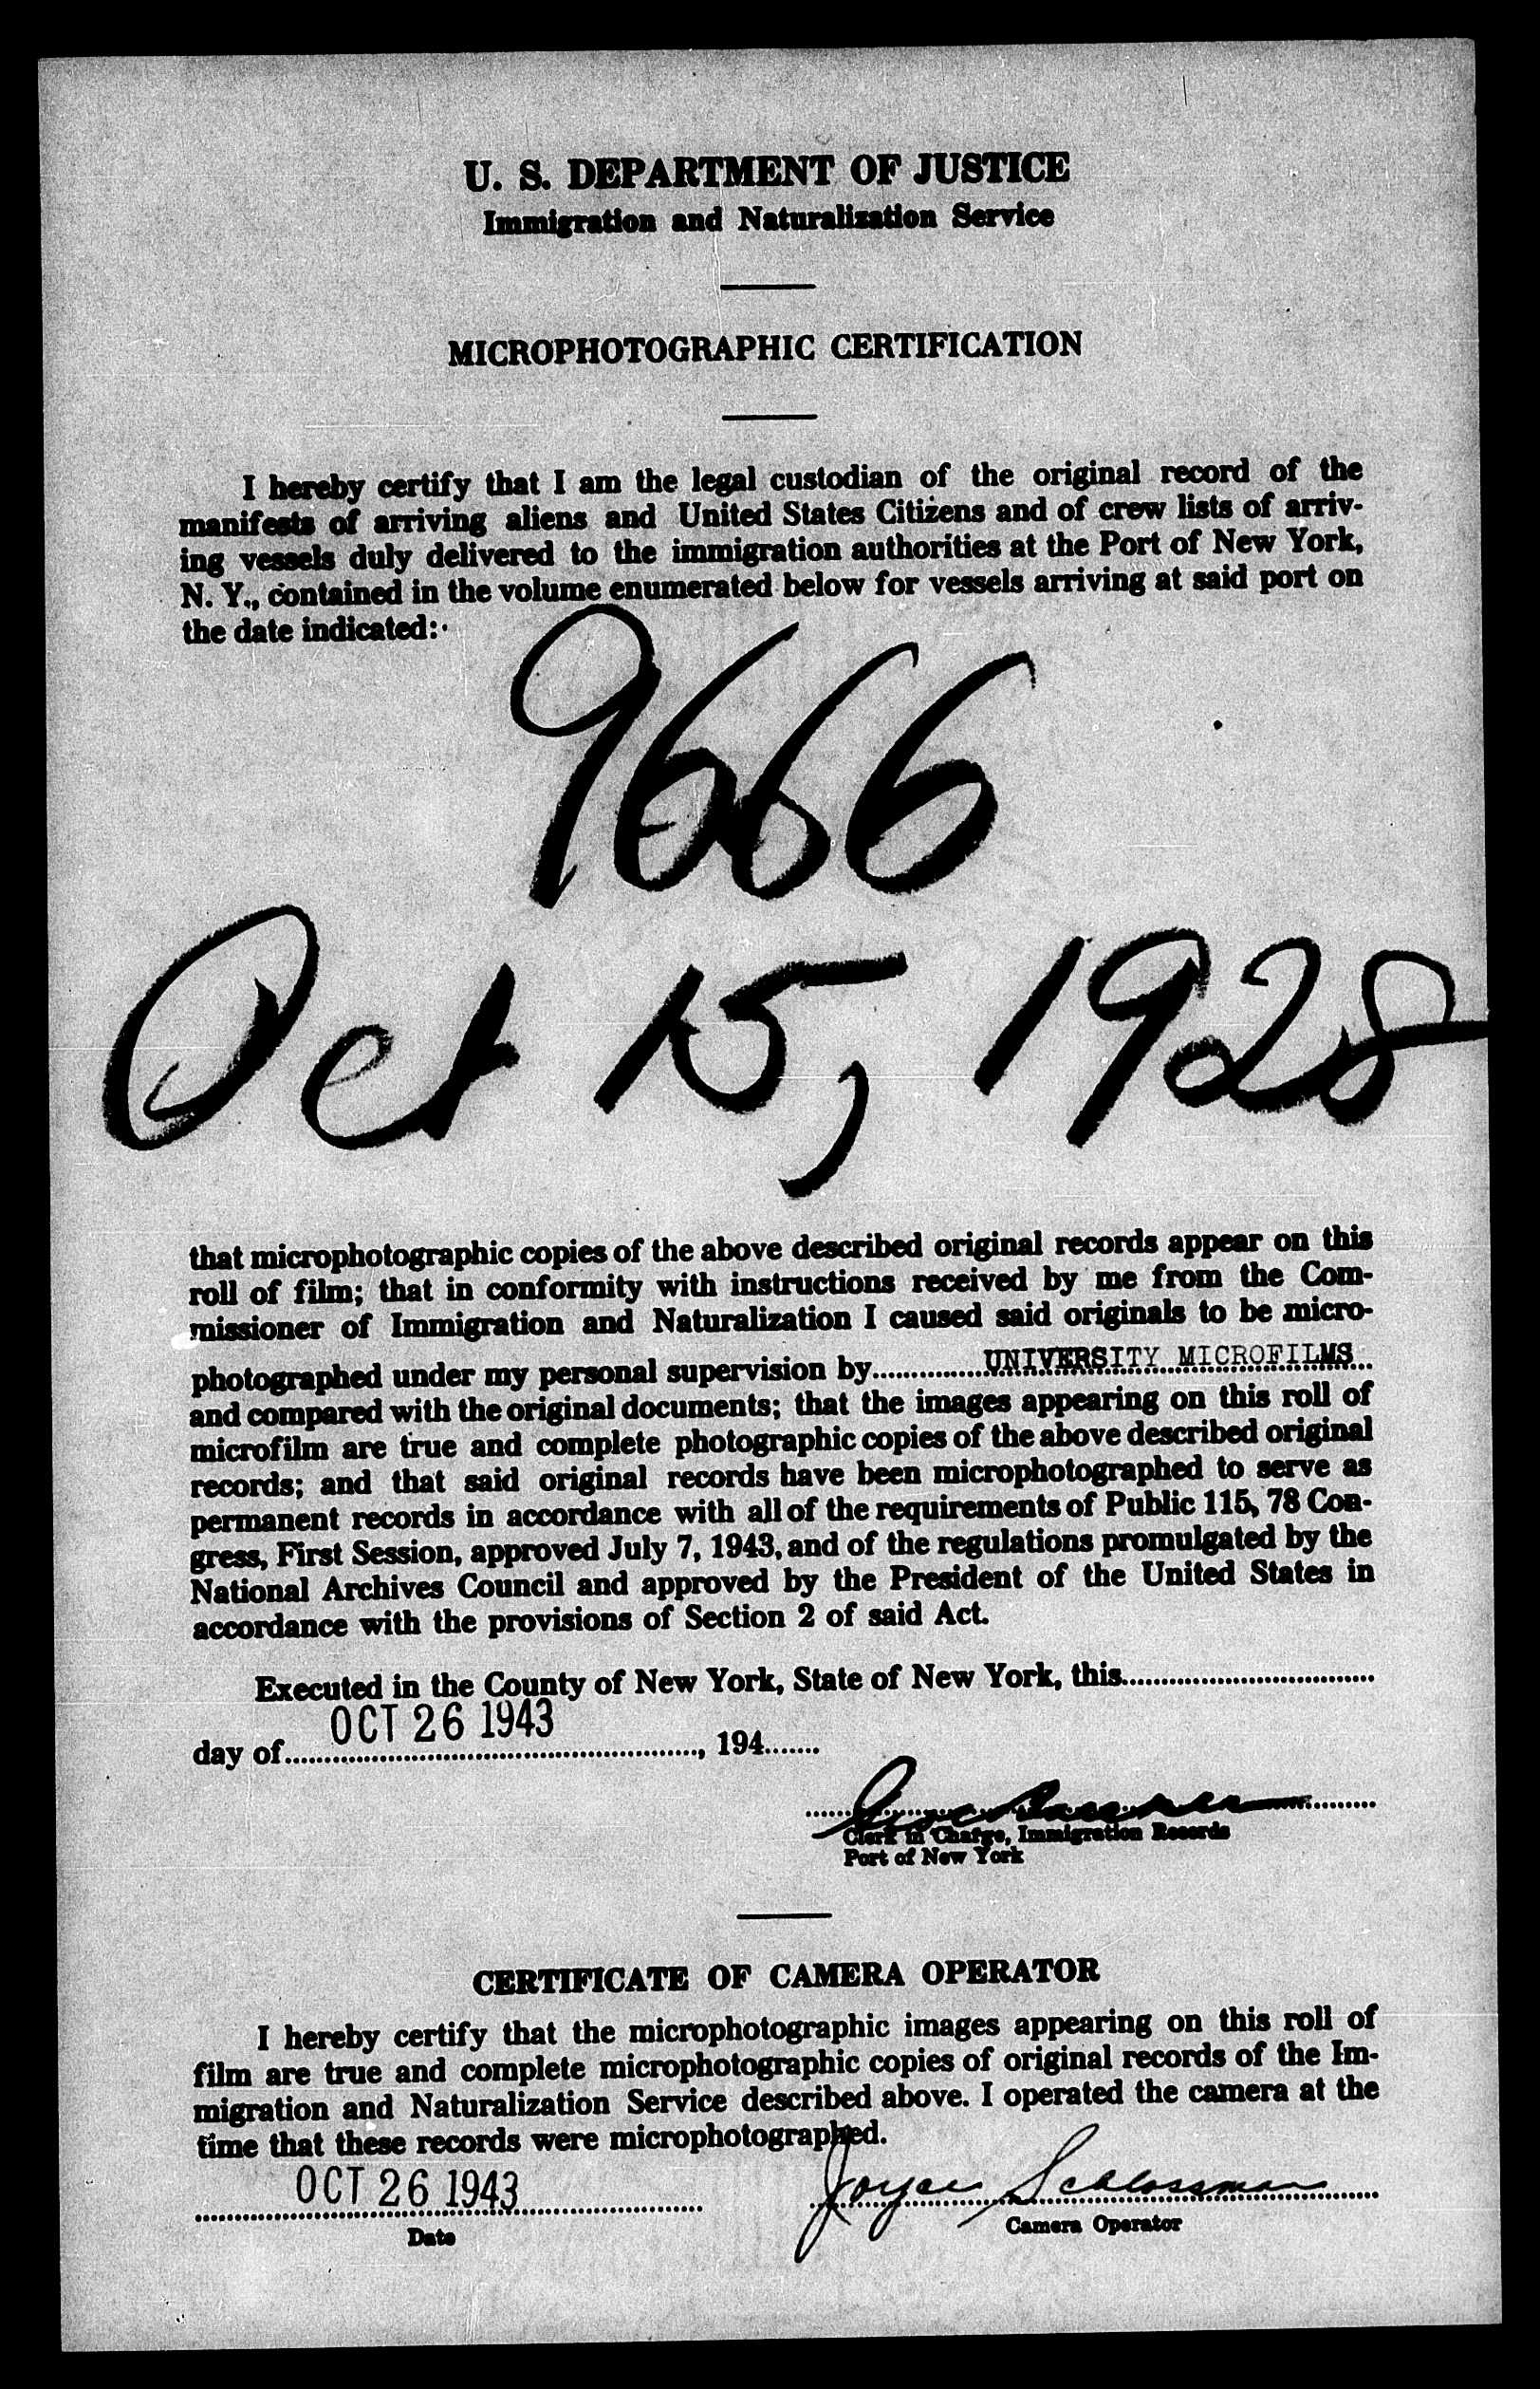 U. S. DEPARTMENT OF JUSTICE
Immigration and Naturalization Service
MICROPHOTOGRAPHIC CERTIFICATION
I hereby certify that I am the legal custodian of the original record of the
manifests of arriving aliens and United States Citizens and of crew lists of arriv-
ing vessels duly delivered to the immigration authorities at the Port of New York,
N. Y., contained in the volume enumerated below for vessels arriving at said port on
the date indicated:
9666
Oct 15, 1928
that microphotographic copies of the above described original records appear on this
roll of film; that in conformity with instructions received by me from the Com-
missioner of Immigration and Naturalization I caused said originals to be micro-
photographed under my personal supervision by UNIVERSITY MICROFILMS
and compared with the original documents; that the images appearing on this roll of
microfilm are true and complete photographic copies of the above described original
records; and that said original records have been microphotographed to serve as
permanent records in accordance with all of the requirements of Public 115, 78 Con-
gress, First Session, approved July 7, 1943, and of the regulations promulgated by the
National Archives Council and approved by the President of the United States in
accordance with the provisions of Section 2 of said Act.
Executed in the County of New York, State of New York, this
day of OCT 26 1943, 194
Clerk in Charge, Immigration Records
Port of New York
CERTIFICATE OF CAMERA OPERATOR
I hereby certify that the microphotographic images appearing on this roll of
film are true and complete microphotographic copies of original records of the Im-
migration and Naturalization Service described above. I operated the camera at the
time that these records were microphotographed.
OCT 26 1943 Joyce Schlossman
Date Camera Operator